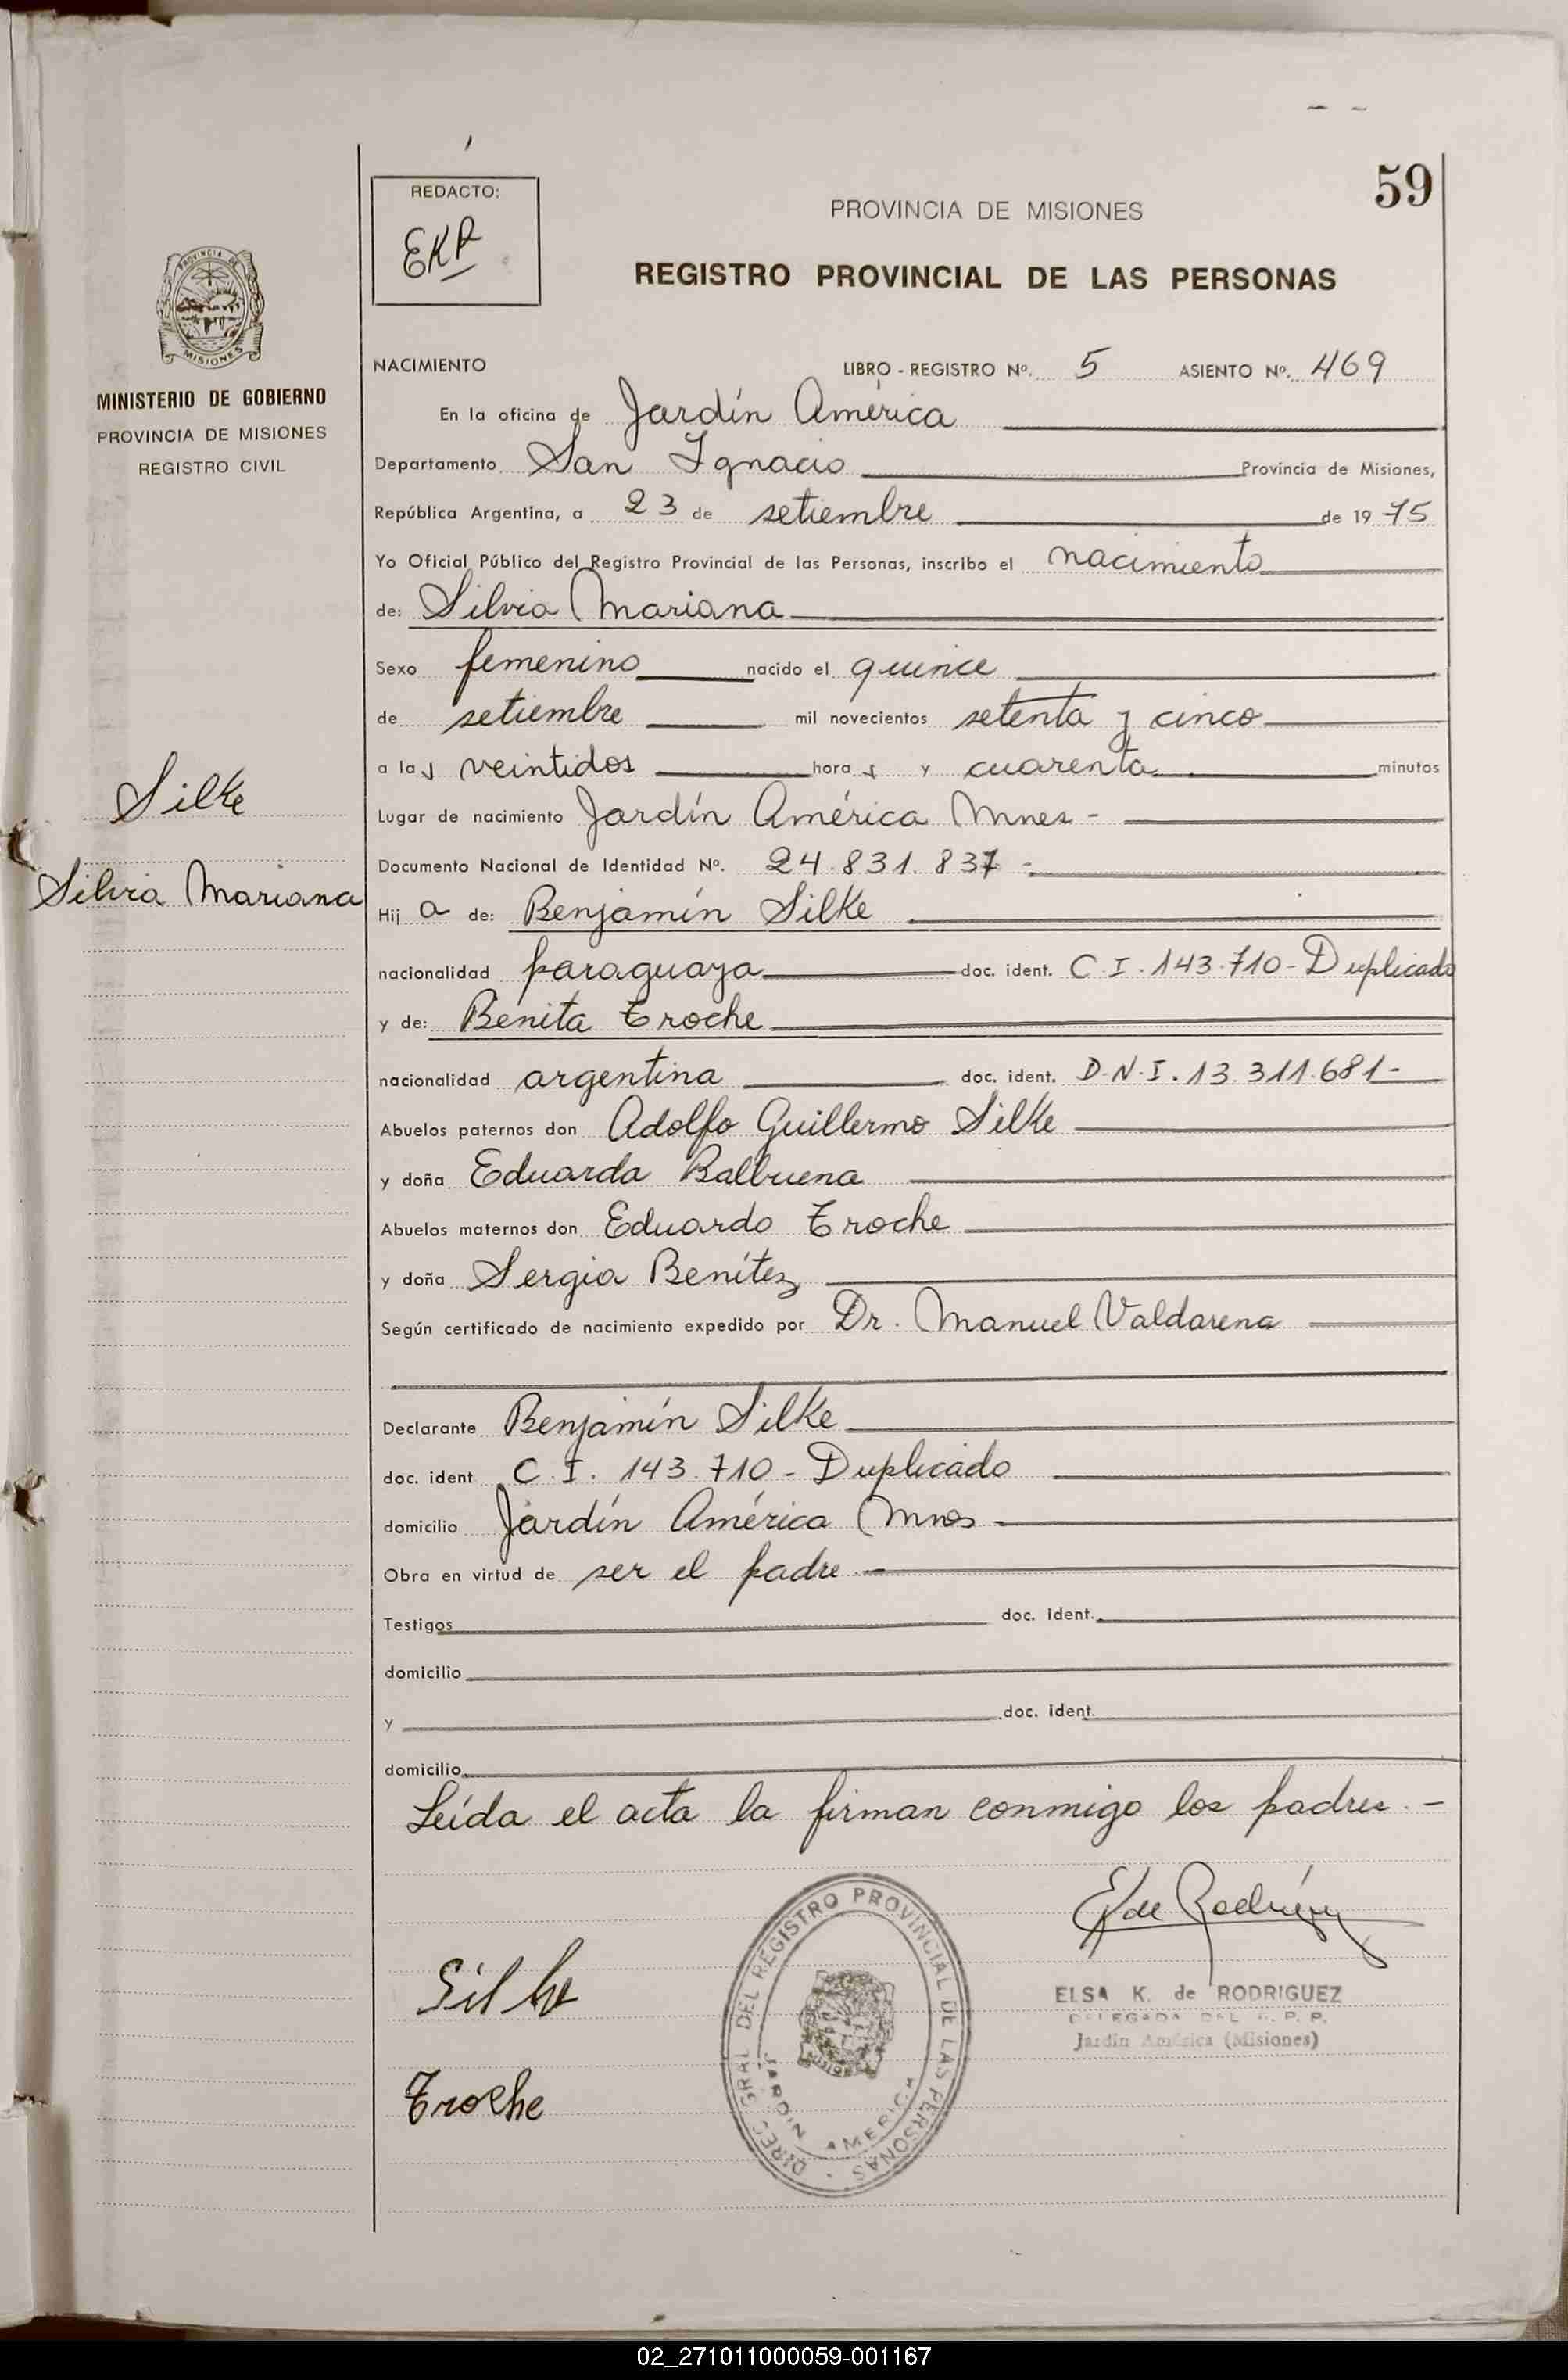 59
REDACTO:
EKR
PROVINCIA DE MISIONES
REGISTRO PROVINCIAL DE LAS PERSONAS
PROVINCIA DE
MISIONES
MINISTERIO DE GOBIERNO
PROVINCIA DE MISIONES
REGISTRO CIVIL
Silke
Silvia Mariana
NACIMIENTO LIBRO - REGISTRO Nº. 5 ASIENTO Nº. 469
En la oficina de Jardín América
Departamento San Ignacio Provincia de Misiones,
República Argentina, a 23 de setiembre de 19 75
Yo Oficial Público del Registro Provincial de las Personas, inscribo el nacimiento
de: Silvia Mariana
Sexo femenino nacido el quince
de setiembre mil novecientos setenta y cinco
a las veintidos horas y cuarenta minutos
Lugar de nacimiento Jardín América Mnes -
Documento Nacional de Identidad Nº. 24.831.837 -
Hij a de: Benjamín Silke
nacionalidad paraguaya doc. ident. C.I. 143.710 - Duplicado
y de: Benita Troche
nacionalidad argentina doc. ident. D.N.I. 13.311.681 -
Abuelos paternos don Adolfo Guillermo Silke
y doña Eduarda Balbuena
Abuelos maternos don Eduardo Troche
y doña Sergia Benítez
Según certificado de nacimiento expedido por Dr. Manuel Valdarena
Declarante Benjamín Silke
doc. ident C.I. 143.710 - Duplicado
domicilio Jardín América Mnes -
Obra en virtud de ser el padre. -
Testigos doc. ident.
domicilio
y doc. ident.
domicilio
Leída el acta la firman conmigo los padres. -
E K de Rodríguez
Silke
Troche
DIREC. GRAL. DEL REGISTRO PROVINCIAL DE LAS PERSONAS
JARDIN AMERICA
ELSA K. de RODRIGUEZ
DELEGADA DEL R. P. P.
Jardín América (Misiones)
02_271011000059-001167